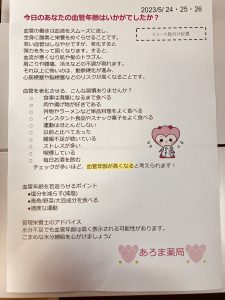 2023/5/24・25・26
今日のあなたの血管年齢はいかがでしたか？
レシート貼り付け位置
血管の働きは血液をスムーズに流し、
全身に酸素と栄養をめぐらせることです。
若い血管はしなやかですが、老化すると
弾力を失って固くなります。すると、
血流が悪くなり肌や髪のトラブル、
肩こりや腰痛、冷えなどの不調が現れます。
それ以上に怖いのは、動脈硬化が進み、
心筋梗塞や脳梗塞などのリスクが高くなることです。
血管を老化させる、こんな習慣ありませんか？
○ 食事は満腹になるまで食べる
○ 肉や揚げ物が好きである
○ 丼物やラーメンなど単品料理をよく食べる
○ インスタント食品やスナック菓子をよく食べる
○ 運動はほとんどしない
○ 以前と比べて太った
○ 睡眠不足が続いている
○ ストレスが多い
○ 喫煙している
○ 毎日お酒を飲む
チェックが多いほど、血管年齢が高くなると考えられます！
血管年齢を若返らせるポイント
●塩分を減らす(減塩)
●青魚/野菜/大豆成分を食べる
●適度な運動
管理栄養士のアドバイス
水分不足でも血管年齢は高く表示される可能性があります。
こまめな水分補給を心がけましょう♪
あろま薬局